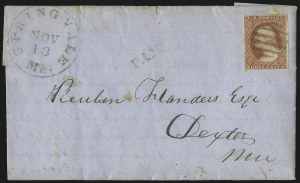 SPRINGVALE Me.
NOV
13
PAID
THREE CENTS
Reuben Flanders Esqr
Dexter
Me